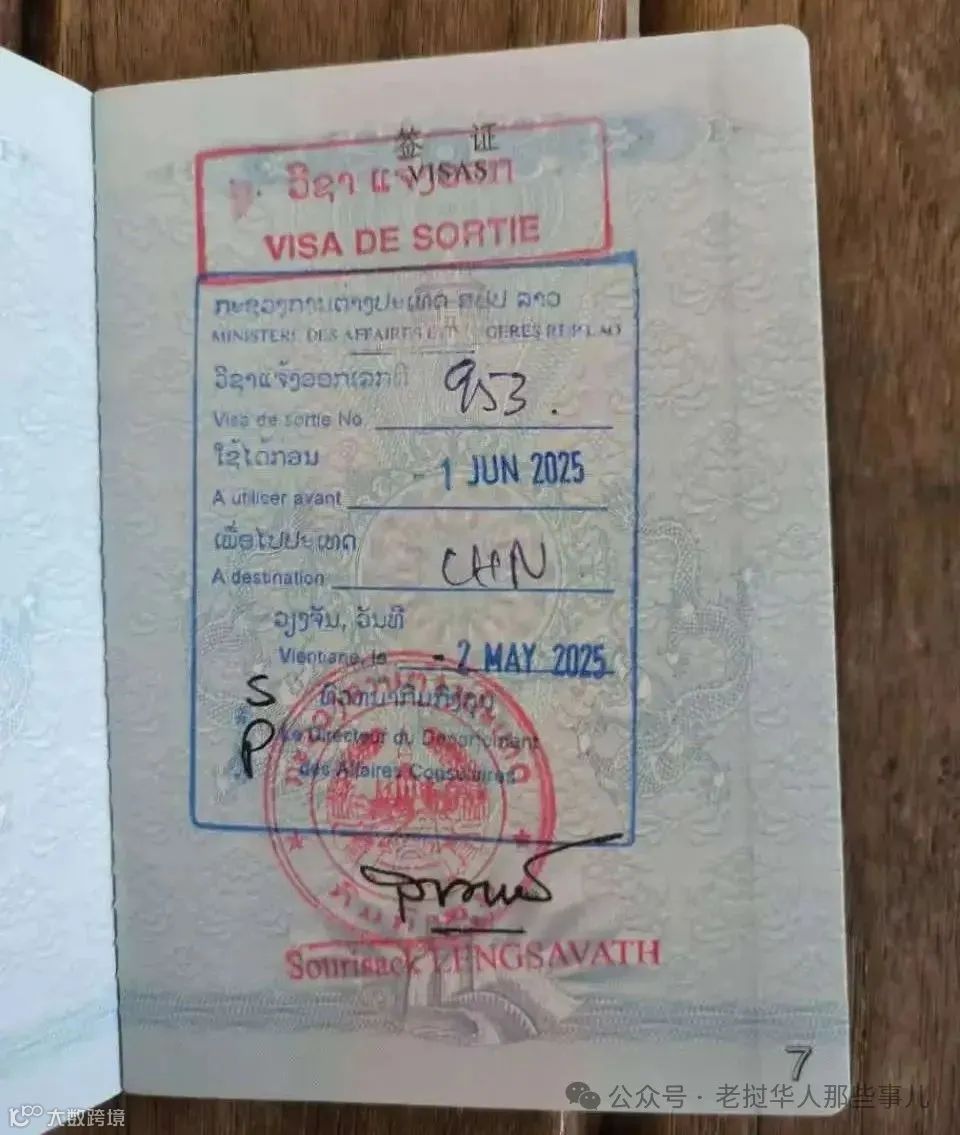 签 证
VISAS
ວີຊາ ແຈ້ງອອກ
VISA DE SORTIE
ກະຊວງການຕ່າງປະເທດ ສປປ ລາວ
MINISTERE DES AFFAIRES
ວີຊາແຈ້ງອອກເລກທີ
953.
Visa de sortie No
ໃຊ້ໄດ້ກ່ອນ
- 1 JUN 2025
A utiliser avant
ເພື່ອໄປປະເທດ
CHN
A destination
ວຽງຈັນ, ວັນທີ
Vientiane, le - 2 MAY 2025
S
P
Le Directeur du Departement
des Affaires Consulaires
Sourisack LENGSAVATH
7
大数跨境
公众号 · 老挝华人那些事儿